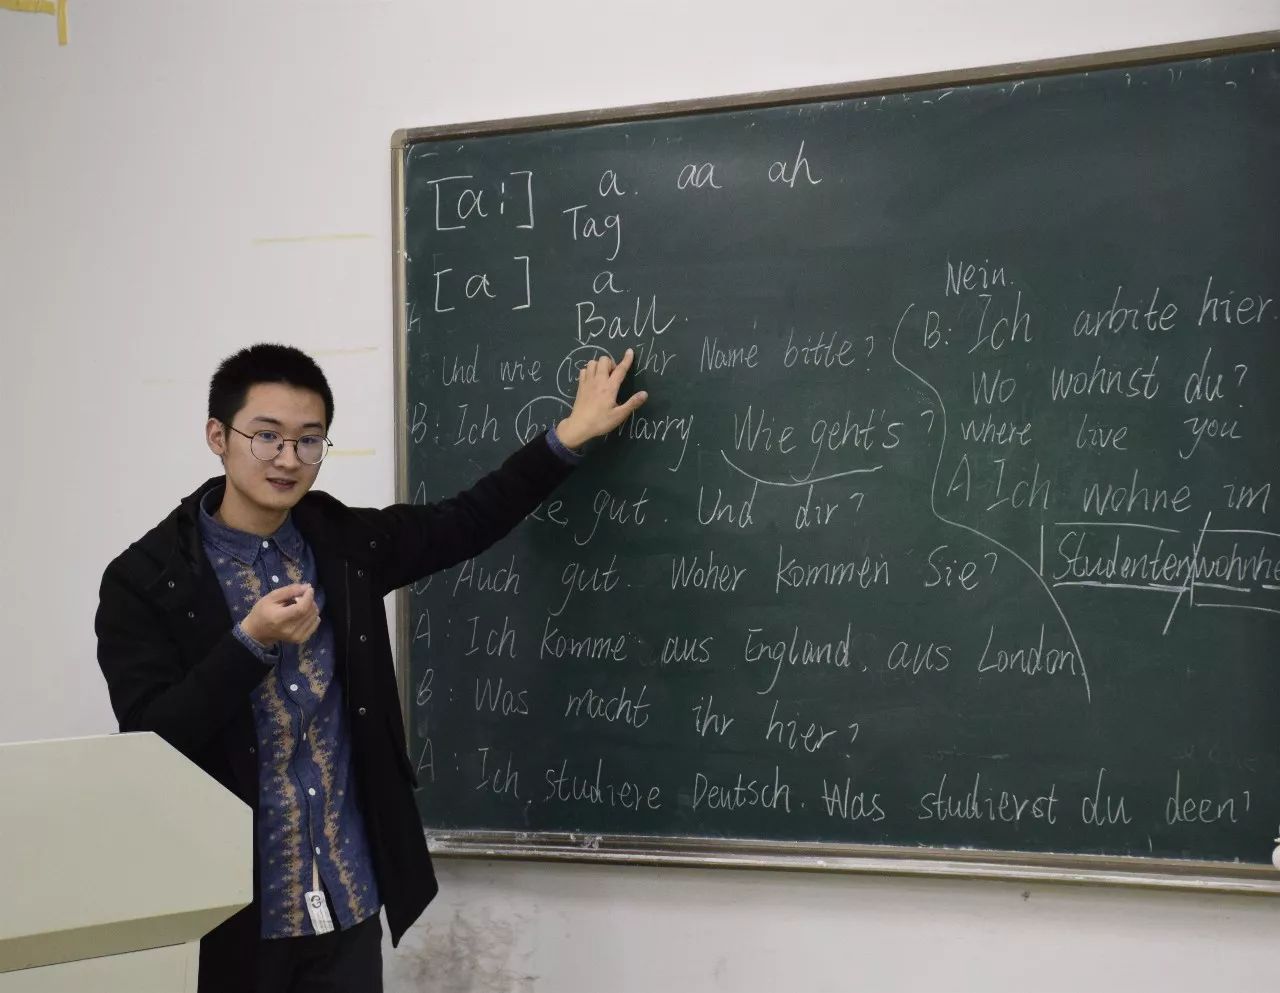 [a:] a. aa ah
Tag
[a] a.
Ball.
Und wie Ihr Name bitte?
B: Ich Marry. Wie geht's?
A: gut. Und dir?
B: Auch gut. Woher kommen Sie?
A: Ich komme aus England, aus London
B: Was macht ihr hier?
A: Ich studiere Deutsch. Was studierst du deen?
Nein.
B: Ich arbite hier.
Wo wohnst du?
where live you
A Ich wohne im
Studentenwohnhe